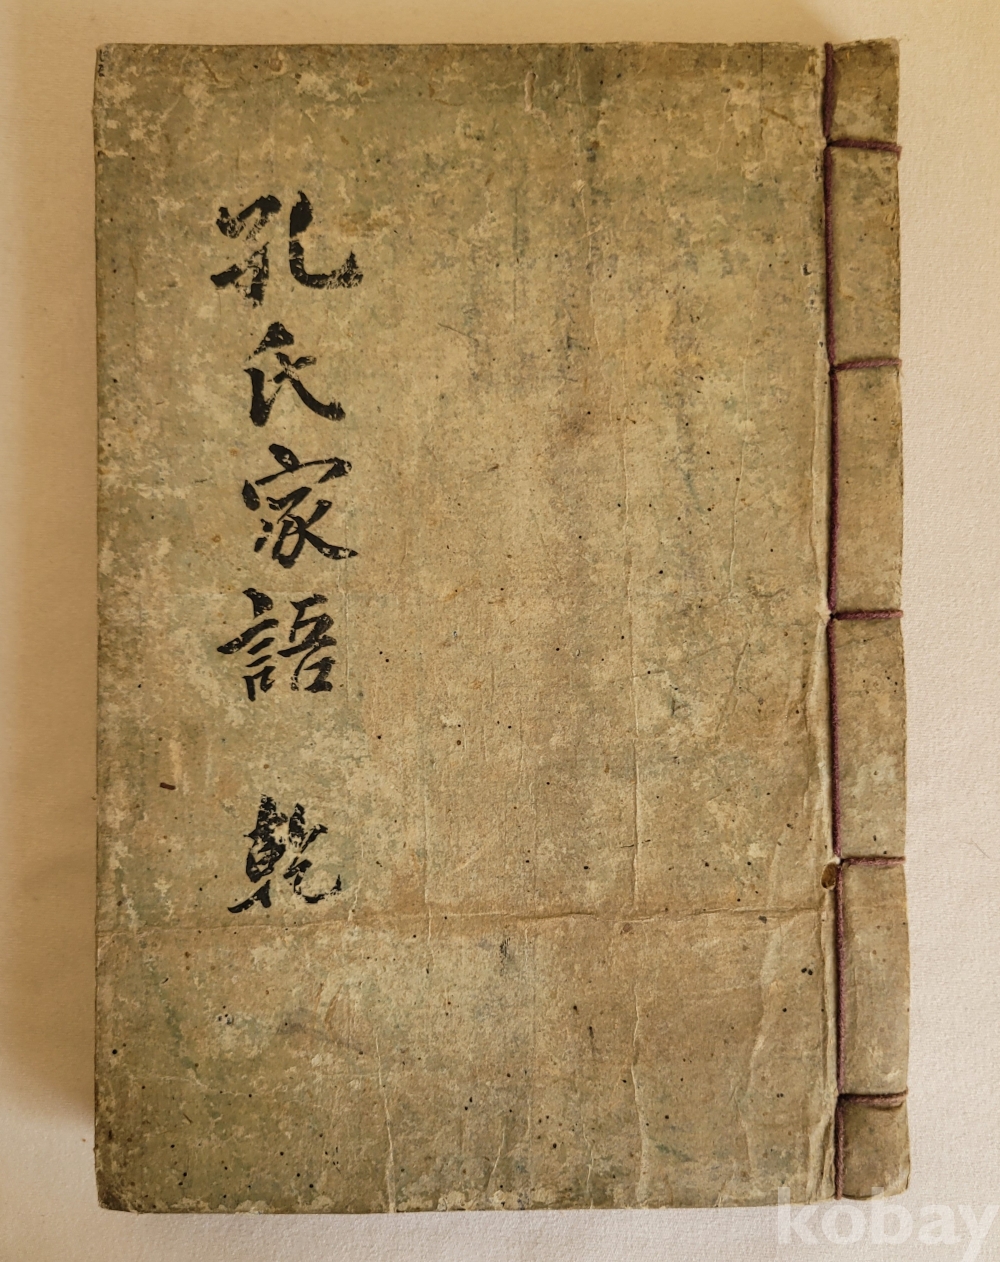 孔氏家語 乾
kobay